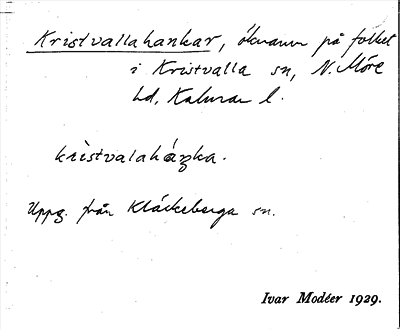 Kristvallahankar, öknamn på folket
i Kristvalla sn, N. Möre
hd, Kalmar l.
krìstvalaháŋka.
Uppg. från Kläckeberga sn.
Ivar Modéer 1929.